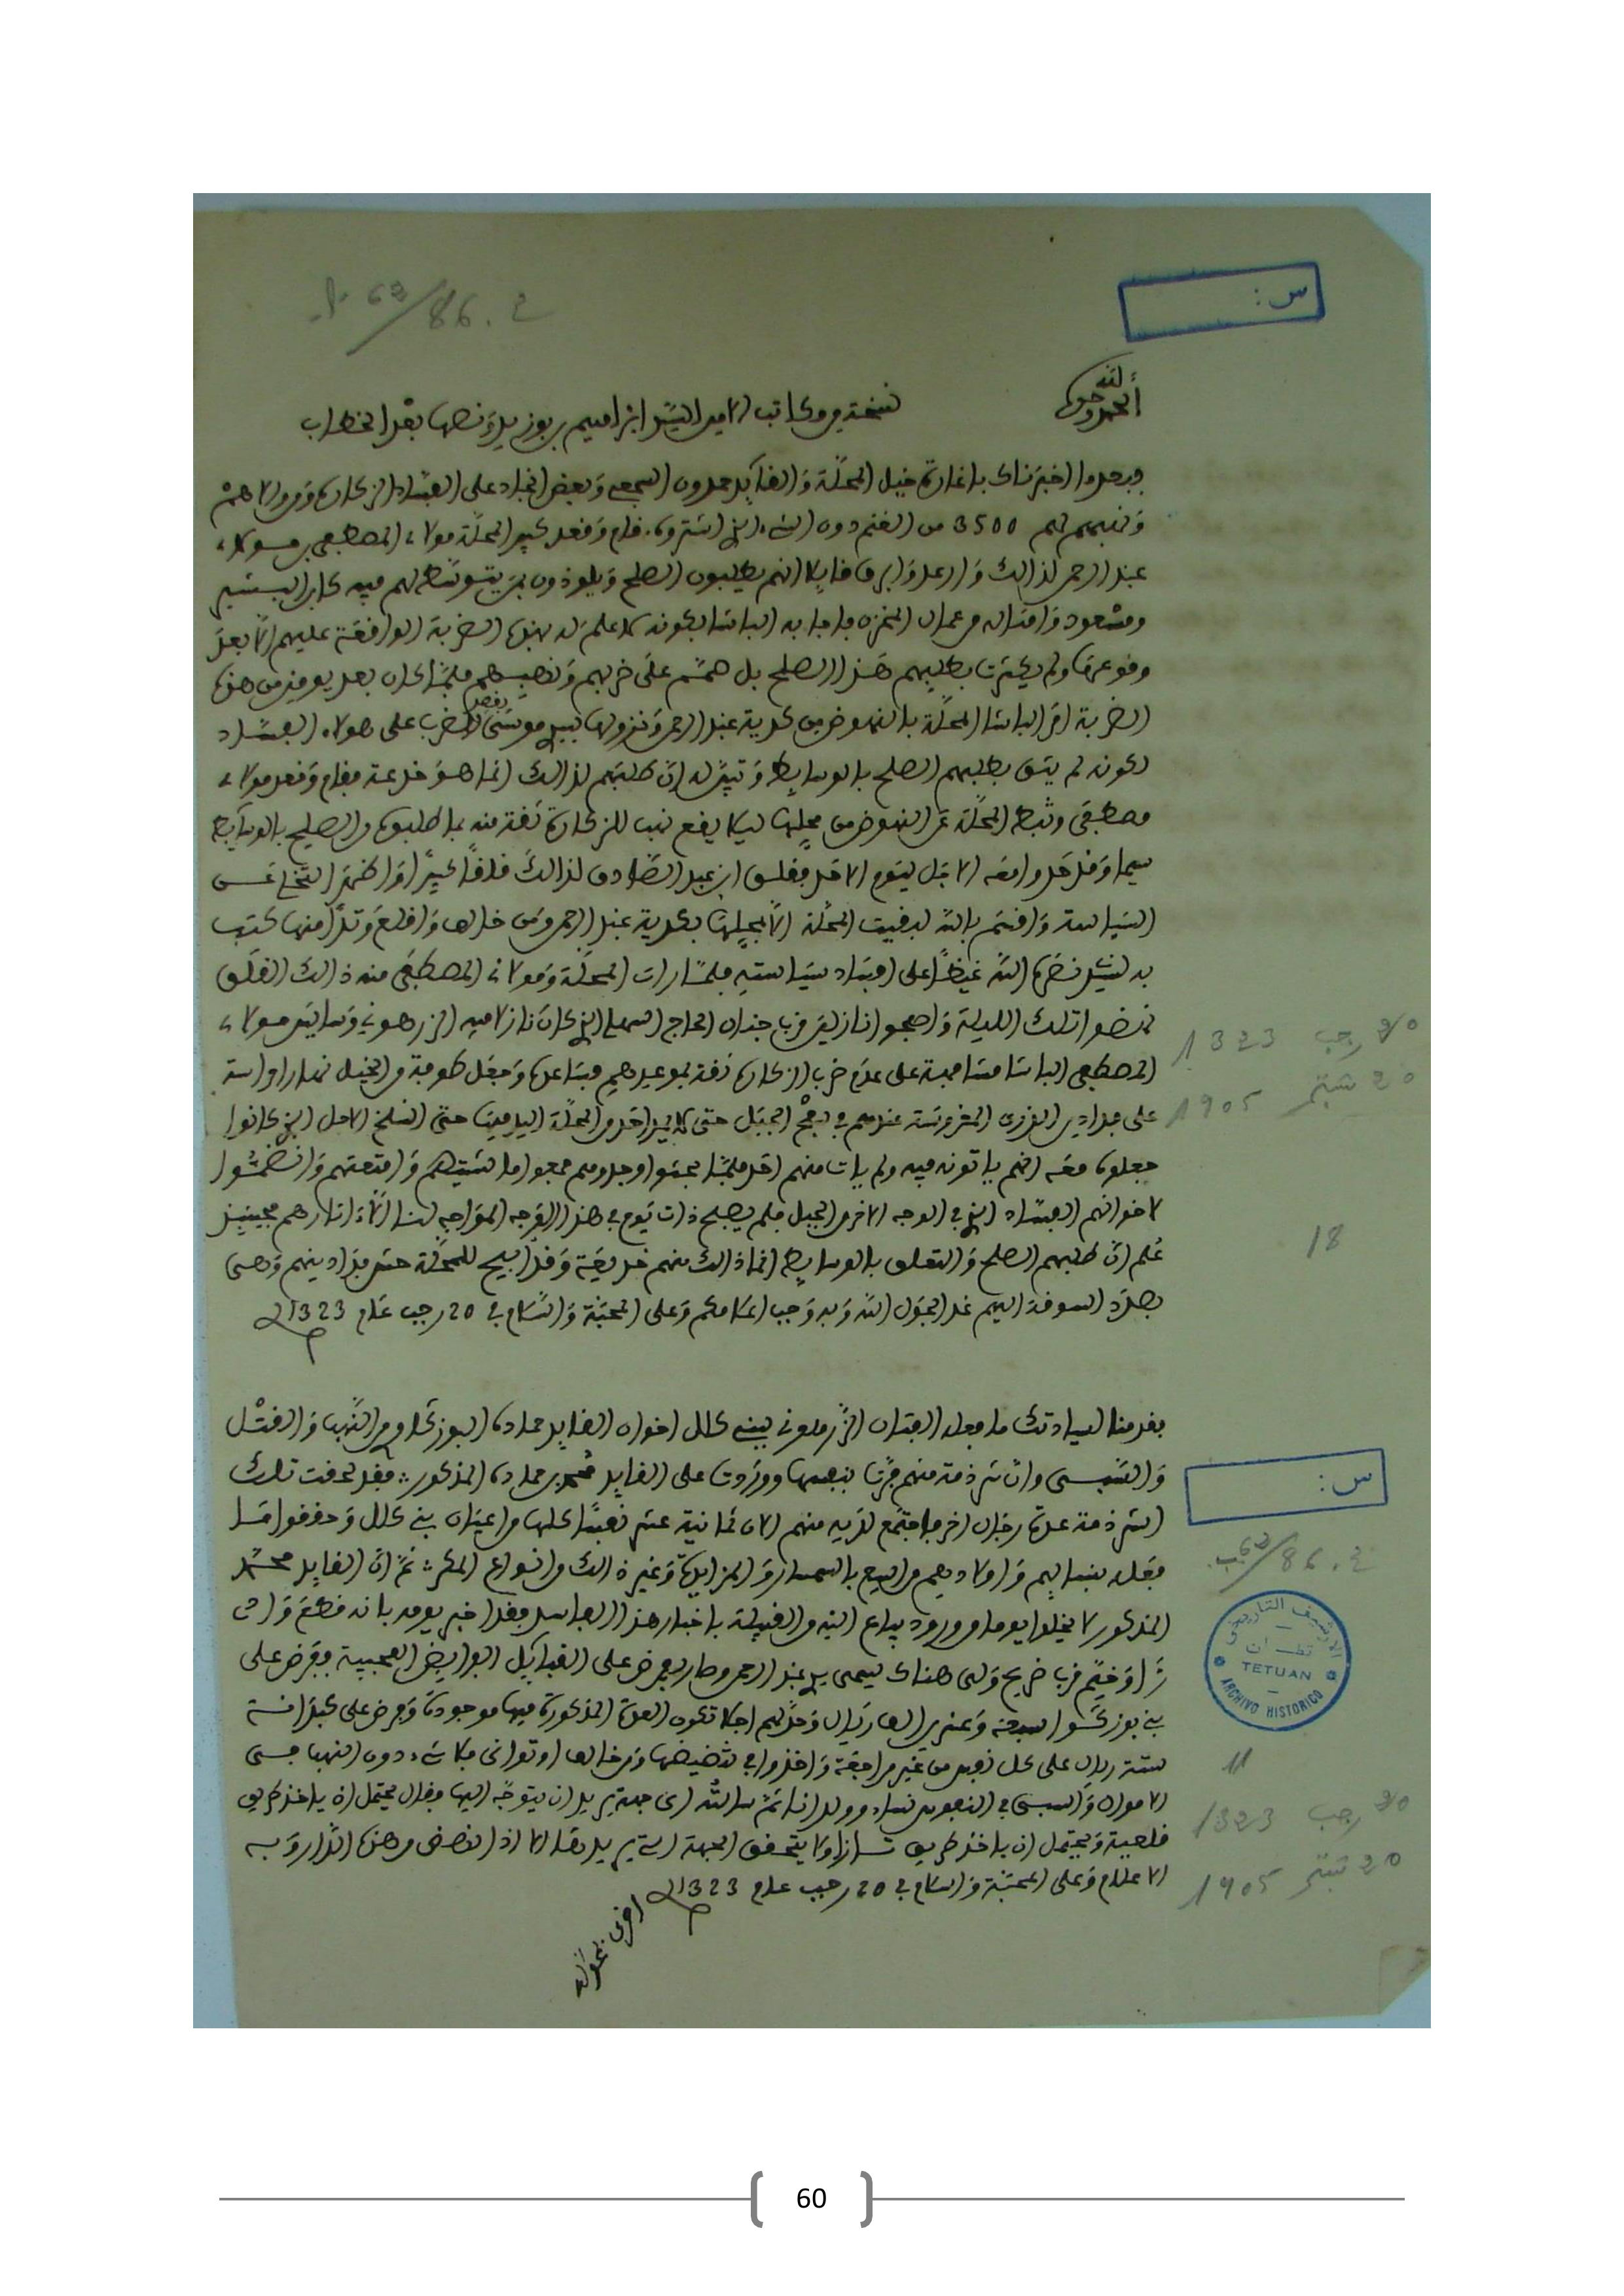 س :
ع . 86/63 . أ
الحمد لله وحده
نسخة من مكاتب الامين السيد ابراهيم بن بوزيد ونصها بعد الخطاب
وبعد اخبرناك باغارة خيل المحلة والقايد حمدون الشجعي وبعض انجاد على الفساد الزكارة ومن والاهم
ونهبهم لهم 3500 من الغنم دون الشيء الذي استروه. قام وقعد كبير المحلة مولاي المصطفى بن مولاي
عبد الرحمن لذالك وارعد وابرق قايلا انهم يطلبون الصلح ويلوذون بمن يتوسط لهم فيه كابن البشير
ومسعود وامثاله من عمال المخزن فاجابه الباشا بكونه لا علم له بهذه الضربة الواقعة عليهم الا بعد
وقوعها ولم يكترث بطلبهم هذا الصلح بل همم على ضربهم ونهبهم فلما كان بعد يومين من هذه
الضربة امر الباشا المحلة بالنهوض من كدية عبد الرحمن ونزولها بسيد موسى بقصد الضرب على هولاء الفساد
لكونه لم يثق بطلبهم الصلح بالوسايط وتبين له ان طلبهم لذالك انما هو خدعة فقام وقعد مولاي
مصطفى وثبط المحلة عن النهوض من محلها ليلا يقع نهب للزكارة ثقة منه بما طلبوه من الصلح بالوسايط
سيما وقد حدوا معه الاجل ليوم الاحد فقلق ابن عبد الصادق لذالك قلقا كبيرا
السياسة واقسم بالله لا بقيت المحلة الا بمحلها بكدية عبد الرحمن ومن خالها واقلع وتلا منها كتب
به لسيدنا نصره الله غيظا على افساد سياسته فلما رات المحلة ومولاي المصطفى منه ذالك القلق
نهضوا تلك الليلة واصبحوا نازلين قرب جنان الحاج السهلي الذي كان نازلا فيه الزرهوني وساير مولاي
المصطفى الباشا مسامحة على عدم ضرب الزكارة ثقة بموعيدهم فساعده وجعل طوفة من الخيل نهارا واسة
على فدادين الذرة المغروسة عندهم في سفح الجبل حتى لا يدخل من المحلة اليه فيها حتى انسلخ الاحل الذي كانوا
جعلوه معه انهم ياتونه فيه ولم يات منهم احد فلما بحثوا وجدوهم جمعوا ماشيتهم وامتعتهم وانضموا
لاخوانهم الفساد الذي في الوجه الاخر من الجبل فلم يصبح ذات يوم في هذا الوجه المواجه لنا الا اثارهم فحينيذ
علم ان طلبهم الصلح والتعلق بالوسايط انما ذالك منهم خديعة وقد ابيح للمحلة حش فدادينهم وهى
بصدد السوقة اليهم غدا بحول الله وبه وجب اعلامكم وعلى المحبة والسلام في 20 رجب عام 1323
20 رجب 1323
20 شتنبر 1905
18
بقدمنا لسيادتك ما فعله الفتان الزرهوني ببني كلال اخوان القايد حمادة البوزكاوي من النهب والقتل
والسبي وان شرذمة منهم فرت بنفسها ووردت على القايد محمد بن حمادة المذكور : فقد لحقت تلك
الشرذمة عدة رجال اخر فاجتمع لديه منهم الان ثمانية عشر نفسا كلها من اعيان بني كلال وحققوا ما
فعله بنسايهم واولادهم من البيع بالسمسار والمزايدة وغير ذالك من انواع المكر : ثم ان القايد محمد
المذكور لا يخلوا يوما من ورود رقاع اليه من القبيلة باخبار هذا الفاسد فقد اخبر يومه بانه قطع واد
زا وخيم قرب ضريح ولى هناك يسمى سيد عبد الرحمن وصار يفرض على القبايل الفرايض العجيبة ففرض على
بني بوزكو سبعة وعشرين الف ريال وحد لهم اجلا تكون العدة المذكورة فيها موجودة وفرض على كبدانة
ستة ريال على كل نفس من غير مراجعة واخذوا في تنضيضها ومن خالف او توانى فلا شيء دون النهب حسى
الاموال والسبي في النفوس نساء وولدانا ثم سالته اى جهة يريد ان يتوجه اليها فقال يحتمل ان ياخذ طريق
قلعية ويحتمل ان ياخذ طريق تازا ولا يتحقق الجهة التي يريدها الا اذا انفصل من هذه الدار وبه
الاعلام وعلى المحبة والسلام في 20 رجب عام 1323
س :
ع . 86/63 ب.
الارشيف التاريخي
تطوان
TETUAN
ARCHIVO HISTORICO
11
20 رجب 1323
20 شتنبر 1905
60